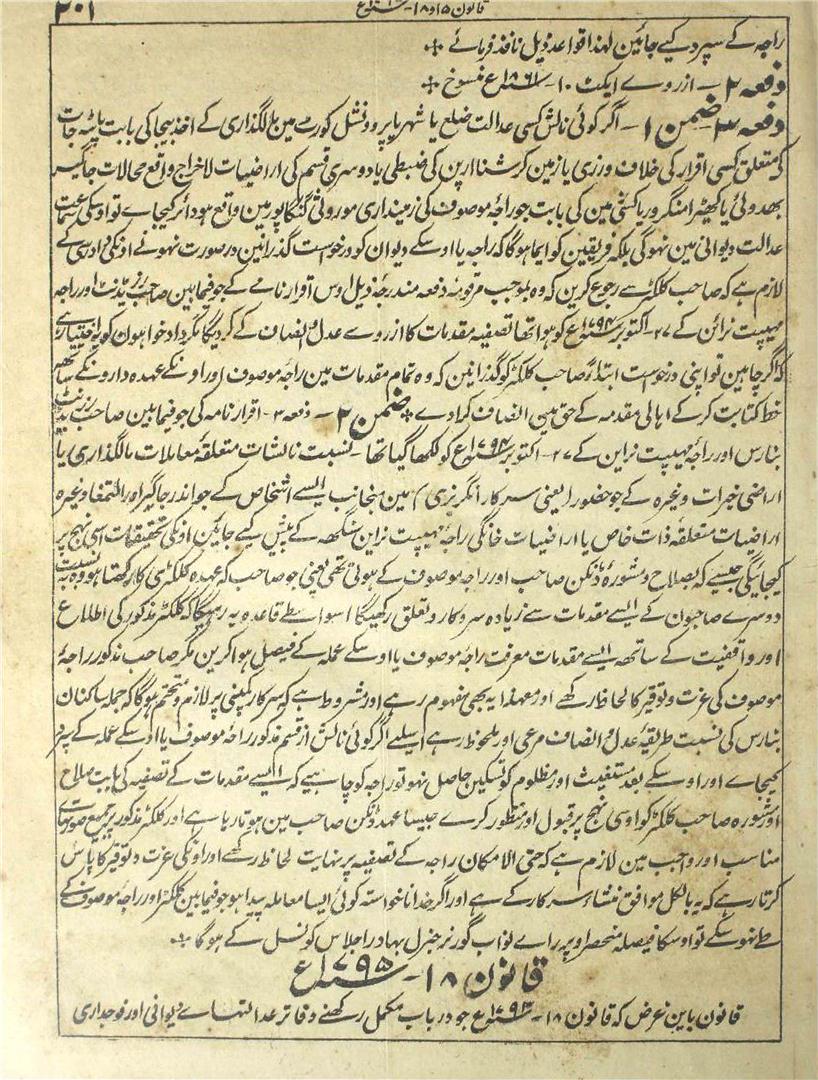 قانون ۱۵ و ۱۸- سنہ ع
۲۰۱
راجہ کے سپرد کیے جاہین لہذا قواعد ذیل نافذ فرمائے
دفعہ ۲- ازروے ایکٹ ۱۰- سنہ ۱۸۶۱ ع منسوخ
دفعہ ۳- ضمن ۱- اگر کوئی نالش کسی عدالت ضلع یا شہر یا پروونشل کورٹ مین مالگذاری کے اخذ بیجا کی بابت یا پٹہ جات
کے متعلق کسی اقرار کی خلاف ورزی یا زمین کرشنا ارپن کی ضبطی یا دوسری قسم کی اراضیات لاخراج واقع محالات جاگیر
بھدوئی یا کھیڑا منگرور یا کسی زمین کی بابت جو راجہ موصوف کی زمینداری موروثی گنگاپور مین واقع ہو دائر کیجاے تو اوسکی سماعت
عدالت دیوانی مین نہوگی بلکہ فریقین کو ایما ہوگا کہ راجہ یا اوسکے دیوان کو درخواست گذرانین در صورت نہونے اونکی دادرسی کے
لازم ہے کہ صاحب کلکٹر سے رجوع کرین کہ وہ بموجب مرقومہ دفعہ مندرجہ ذیل اوس اقرار نامے کے جو فیمابین صاحب رزیڈنٹ اور راجہ
مہیپت نرائن کے ۲۷- اکتوبر سنہ ۱۷۹۴ ع کو ہوا تھا تصفیہ مقدمات کا ازروے عدل و انصاف کے کر دیگا مگر دادخواہون کو یہ اختیار ہے
کہ اگر چاہین تو اپنی درخواست ابتداءً صاحب کلکٹر کو گذرانین کہ وہ تمام مقدمات مین راجہ موصوف اور اونکے عہدہ دارونکے ساتھہ
خط کتابت کرکے اہالی مقدمہ کے حق مین انصاف کرادے ضمن ۲- دفعہ ۳- اقرار نامہ کی جو فیمابین صاحب رزیڈنٹ
بنارس اور راجہ مہیپت نراین کے ۲۷- اکتوبر سنہ ۱۷۹۴ ع کو لکھا گیا تھا- بنسبت نالشات متعلقہ معاملات مالگذاری یا
اراضی خیرات وغیرہ کے جو حضور (یعنی سرکار انگریزی) مین منجانب ایسے اشخاص کے جو اندر جاگیر اور التمغا وغیرہ
اراضیات متعلقہ ذات خاص یا اراضیات خانگی راجہ مہیپت نراین سنگھہ کے پیش کیے جائین اونکی تحقیقات اسی نہج پر
کیجائیگی جیسے کہ بصلاح و مشورہ ڈنکن صاحب اور راجہ موصوف کے ہوتی تھی یعنی جو صاحب کہ عہدہ کلکٹری کا رکھتا ہو وہ بہ نسبت
دوسرے صاحبون کے ایسے مقدمات سے زیادہ سروکار و تعلق رکھیگا اسواسطے قاعدہ یہ رہیگا کہ کلکٹر مذکور کی اطلاع
اور واقفیت کے ساتھہ ایسے مقدمات معرفت راجہ موصوف یا اوسکے عملہ کے فیصل ہوا کرین مگر صاحب مذکور راجہ
موصوف کی عزت و توقیر کا لحاظ رکھے اور معہذا یہ بھی مفہوم رہے اور مشروط ہے کہ سرکار کمپنی پر لازم و متحتم ہوگا کہ جملہ ساکنان
بنارس کی نسبت طریقہ عدل و انصاف مرعی اور ملحوظ رہے اسلیے اگر کوئی نالش از قسم مذکور راجہ موصوف یا اوسکے عملہ کے سپرد
کیجاے اور اوسکے بعد مستغیث اور مظلوم کو تسکین حاصل نہو تو راجہ کو چاہیے کہ ایسے مقدمات کے تصفیہ کی بابت صلاح
اور مشورہ صاحب کلکٹر کو اوسی نہج پر قبول اور منظور کرے جیسا عہد ڈنکن صاحب مین ہوتا رہا ہے اور کلکٹر مذکور پر جمیع صورتہاے
مناسب اور واجب مین لازم ہے کہ حتی الامکان راجہ کے تصفیہ پر نہایت لحاظ رکھے اور اونکی عزت و توقیر کا پاس
کرتا رہے کہ یہ بالکل موافق منشاء سرکار کے ہے اور اگر خدانخواستہ کوئی ایسا معاملہ پیدا ہو جو فیمابین کلکٹر اور راجہ موصوف کے
طے نہوسکے تو اوسکا فیصلہ منحصر اوپر راے نواب گورنر جنرل بہادر اجلاس کونسل کے ہوگا
قانون ۱۸- سنہ ۱۷۹۵ ع
قانون باین غرض کہ قانون ۱۸- سنہ ۱۷۹۳ ع جو درباب مکمل رکھنے دفاتر عدالتہاے دیوانی اور فوجداری